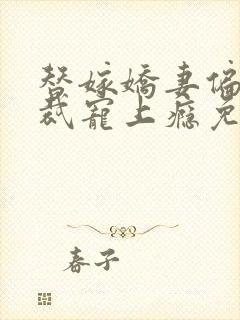 替嫁嬌妻偏
裁寵上癮免
春子